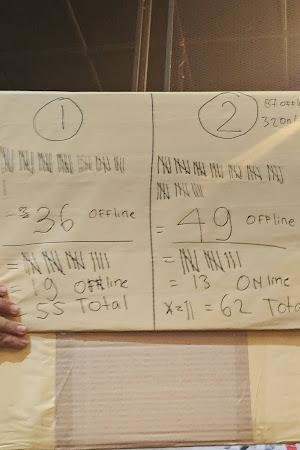 1
= 36 OFFline
=
= 19 OFFline
55 Total
2
87 offl
32 onl
= 49 OFFline
=
= 13 ONline
X=11 = 62 Tota